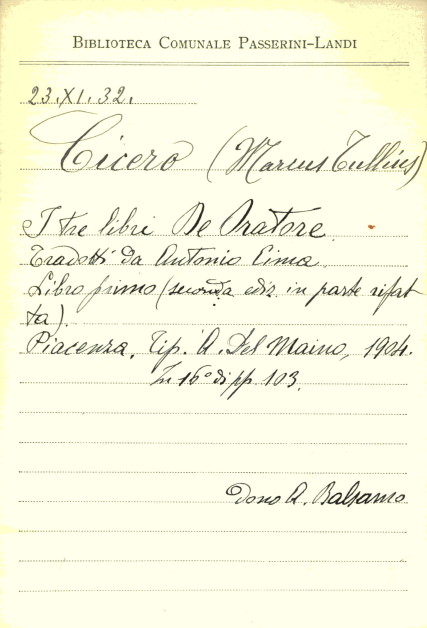 BIBLIOTECA COMUNALE PASSERINI-LANDI
23.XI.32.
Cicero (Marcus Tullius)
I tre libri De Oratore
Tradotti da Antonio Cima
Libro primo (seconda ediz. in parte rifat
ta).
Piacenza, Tip. A. Del Maino, 1904.
In 16° di pp. 103.
Dono A. Balsamo